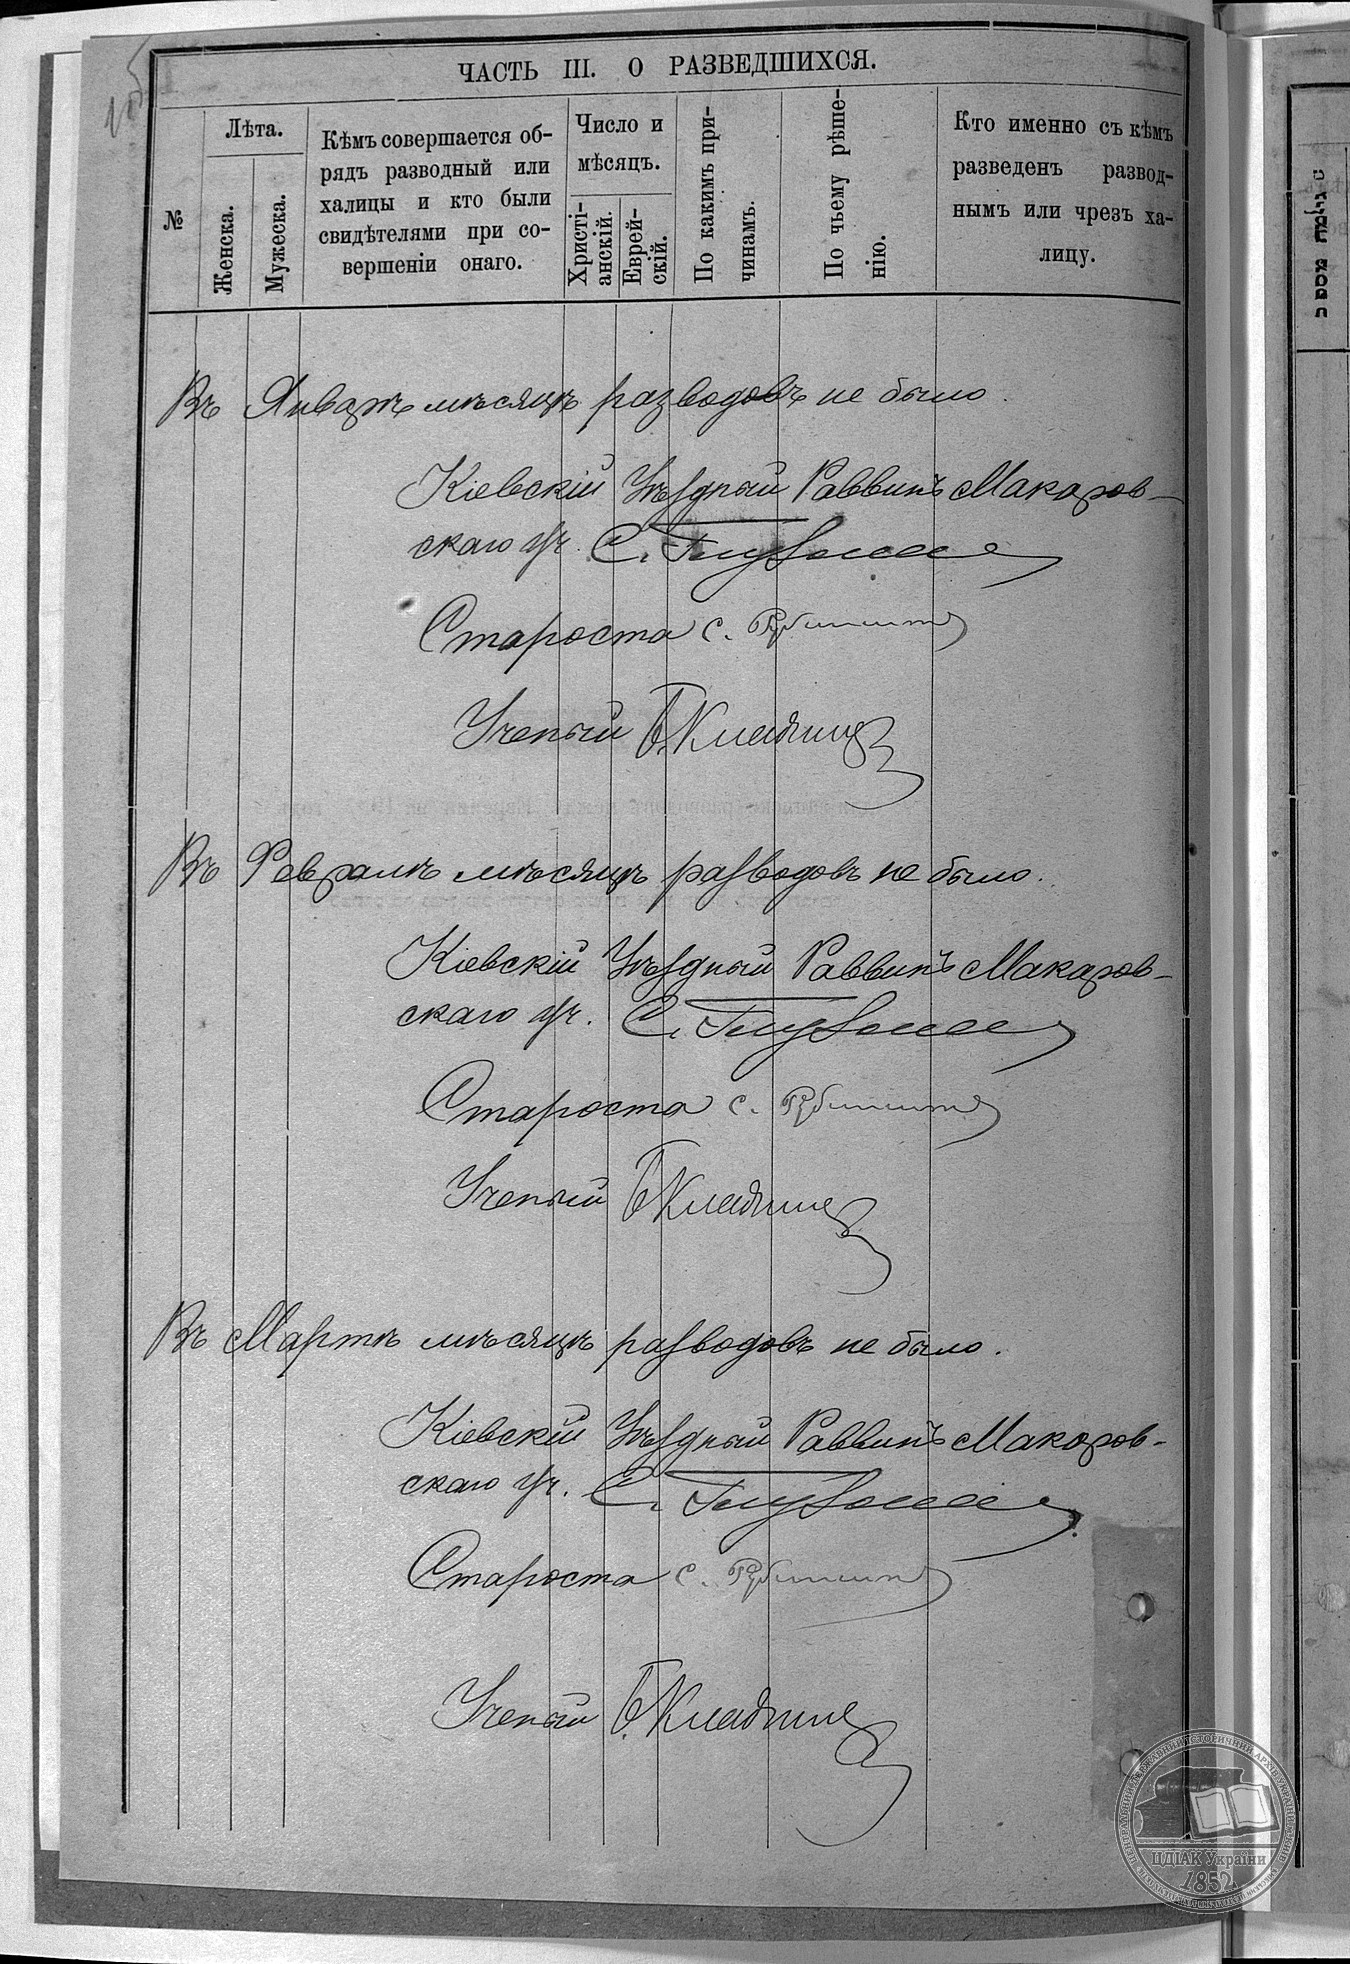 ЧАСТЬ III. О РАЗВЕДШИХСЯ.
№
Лѣта.
Женска.
Мужеска.
Кѣмъ совершается об-
рядъ разводный или
халицы и кто были
свидѣтелями при со-
вершеніи онаго.
Число и
мѣсяцъ.
Христі-
анскій.
Еврей-
скій.
По какимъ при-
чинамъ.
По чьему рѣше-
нію.
Кто именно съ кѣмъ
разведенъ развод-
нымъ или чрезъ ха-
лицу.
Въ Январѣ мѣсяцѣ разводовъ не было.
Кіевскій Уѣздный Раввинъ Макаров-
скаго уч. С.
Староста С.
Ученый Б.
Въ Февралѣ мѣсяцѣ разводовъ не было.
Кіевскій Уѣздный Раввинъ Макаров-
скаго уч. С.
Староста С.
Ученый Б
Въ Мартѣ мѣсяцѣ разводовъ не было.
Кіевскій Уѣздный Раввинъ Макаров-
скаго уч. С.
Староста С.
Ученый Б.
ЦДІАК України
1852